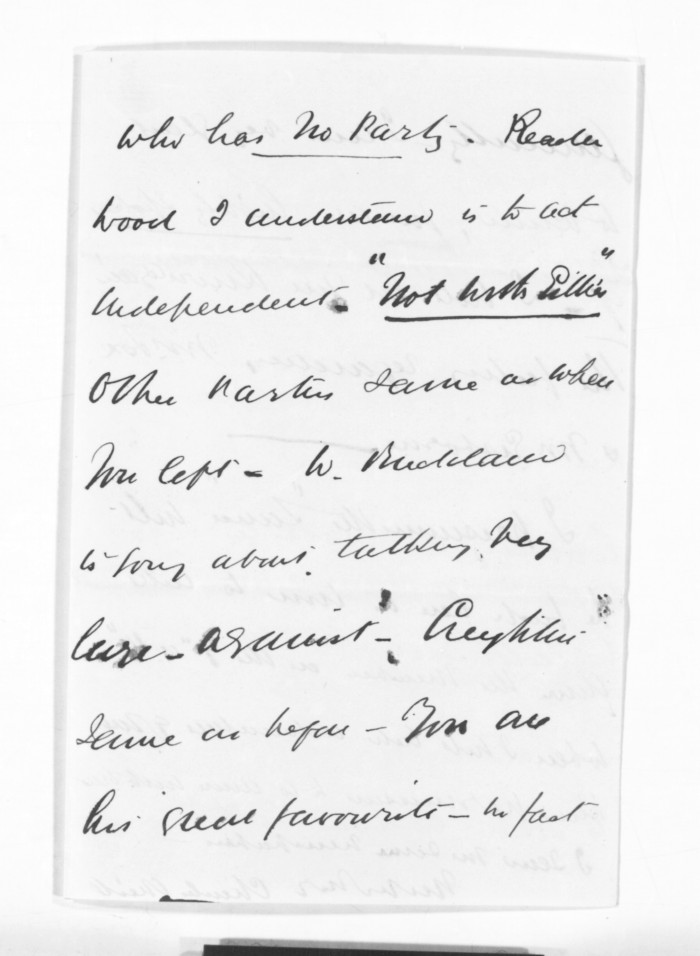 who has No Party. Reader
Wood I understand is to act
Independent - "Not with Either"
Other parties same as when
You left - W. Buckland
is going about, talking very
large - against -
same as before - You are
his great favourite - in fact